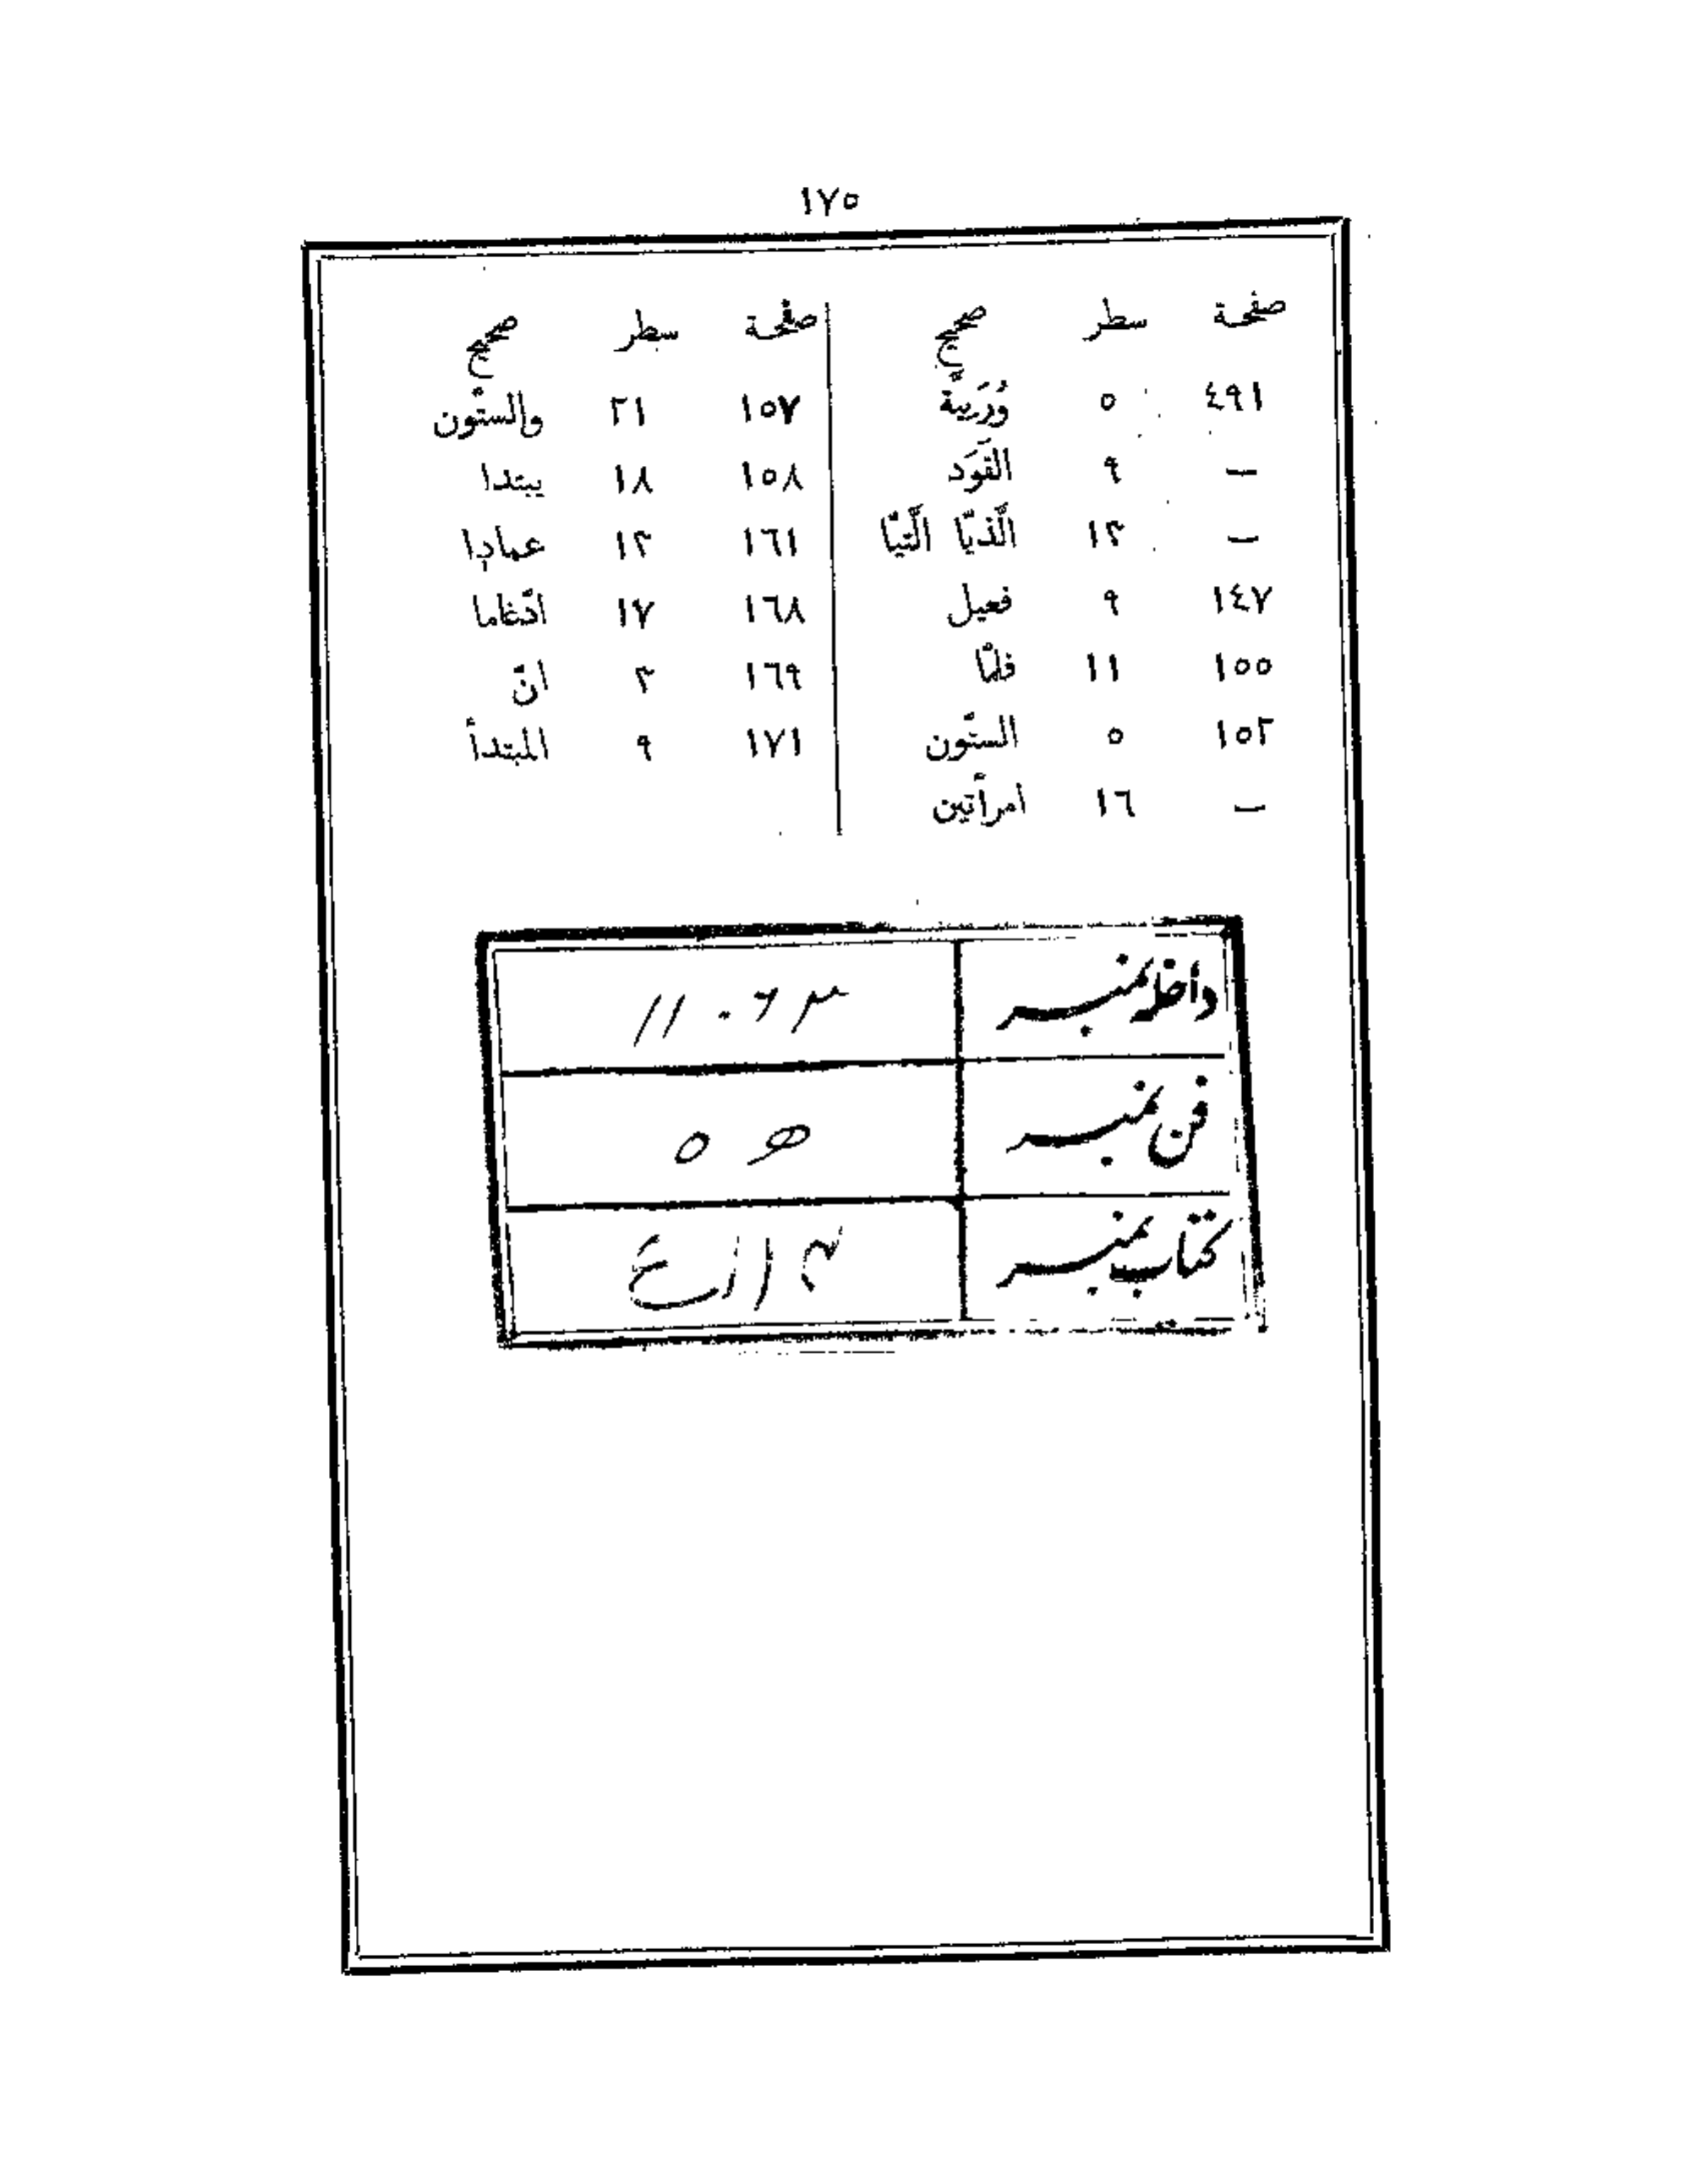 ١٧٥
صفحة سطر صحيح
٤٩١ ٥ وُرَيِّئة
— ٩ القَوَد
— ١٣ الَّذيّا الَّتيّا
١٤٧ ٩ فعيل
١٥٥ ١١ فلمّا
١٥٢ ٥ الستّون
— ١٦ امرأتين
صفحة سطر صحيح
١٥٧ ٢١ والستّون
١٥٨ ١٨ يبتدا
١٦١ ١٣ عمادا
١٦٨ ١٧ ادّغاما
١٦٩ ٣ انّ
١٧١ ٩ المبتدأ
داخلہ نمبر ١١٠٦٣
فن نمبر
کتاب نمبر